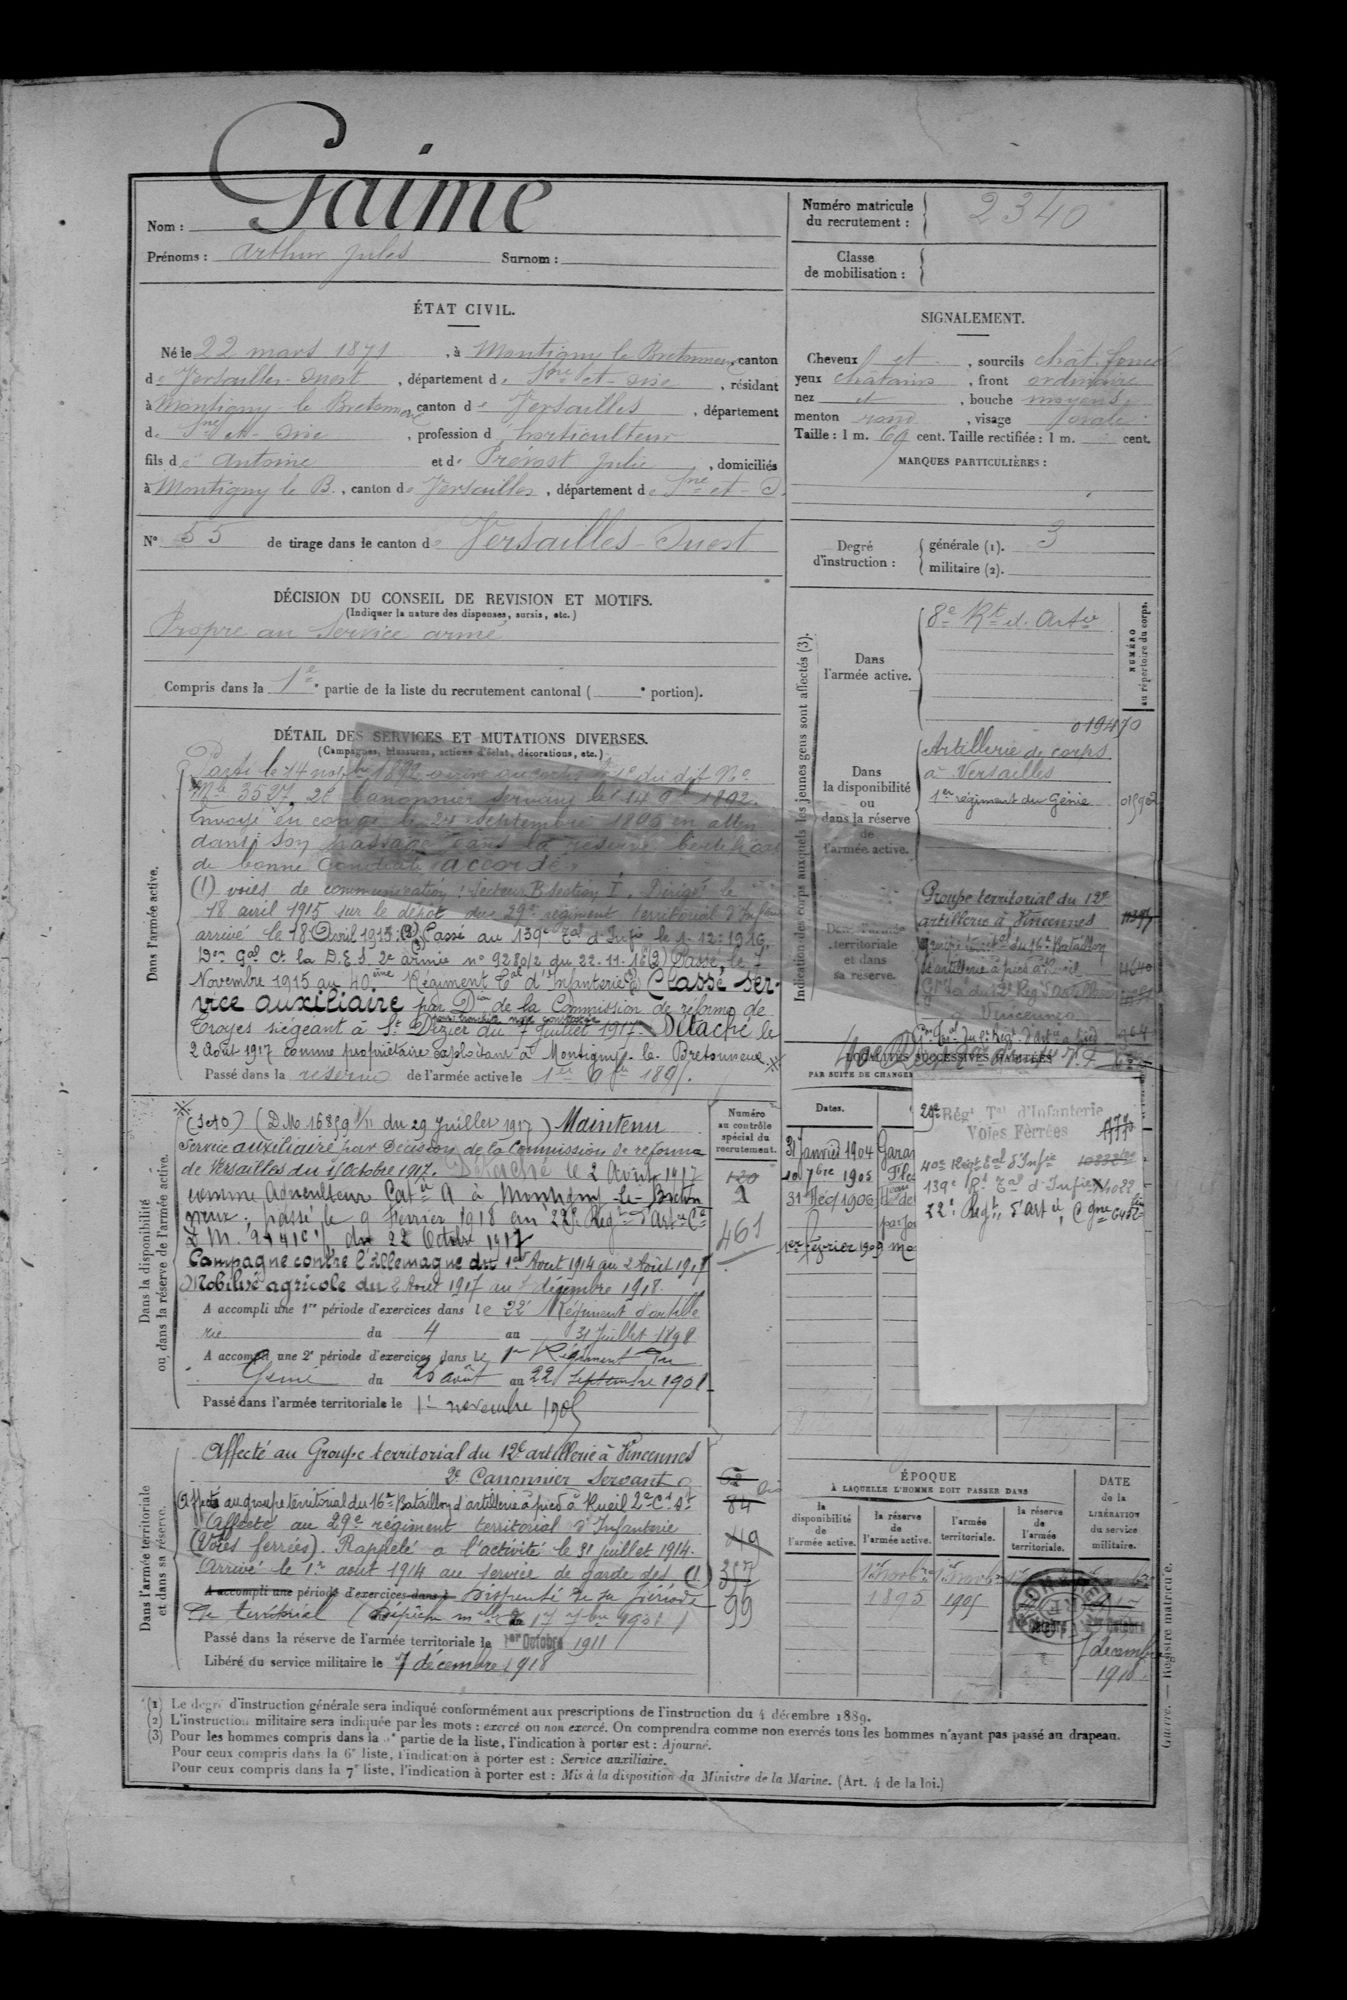 Nom : Gaime
Prénoms : Arthur Jules Surnom :
Numéro matricule
du recrutement : 2340
Classe
de mobilisation :
ÉTAT CIVIL.
Né le 22 mars 1871, à Montigny le Bretonneux, canton
de Versailles-Ouest, département de Sne-et-Oise, résidant
à Montigny le Bretonneux canton de Versailles, département
de Sne-et-Oise, profession d'horticulteur
fils de Antoine et de Prévost Julie, domiciliés
à Montigny le B., canton de Versailles, département de Sne-et-O.
N° 55 de tirage dans le canton de Versailles-Ouest
DÉCISION DU CONSEIL DE REVISION ET MOTIFS.
(Indiquer la nature des dispenses, sursis, etc.)
Propre au Service armé
Compris dans la 1e partie de la liste du recrutement cantonal ( e portion).
SIGNALEMENT.
Cheveux et, sourcils chât. foncé
yeux châtains, front ordinaire
nez et, bouche moyens
menton rond, visage ovale
Taille : 1 m. 69 cent. Taille rectifiée : 1 m. cent.
MARQUES PARTICULIÈRES :
Degré
d'instruction :
générale (1). 3
militaire (2).
DÉTAIL DES SERVICES ET MUTATIONS DIVERSES.
(Campagnes, blessures, actions d'éclat, décorations, etc.)
Dans l'armée active.
Parti le 14 novbre 1892, arrivé au corps le dit No
Mle 3527, 2e Canonnier servant le 14 9bre 1892.
Envoyé en congé le septembre 1895 en atten
dant son passage dans la réserve. Certificat
de bonne conduite accordé
(1) voies de communication : Secteur B section I. Dirigé le
18 avril 1915 sur le dépôt du 29e régiment territorial d'Infrie
arrivé le 18 Avril 1915. (3) Passé au 139e Tal d'Infie le 1.12.1916.
Don Gal Ct la D.E.S. 2e armée n° 9280/2 du 22.11.16 (2) Passé le 7
Novembre 1915 au 40ème Régiment Tal d'Infanterie Classé ser-
vice auxiliaire par Don de la Commission de réforme de
Troyes siégeant à St Dizier du 7 Juillet 1917. Détaché le
2 Août 1917 comme propriétaire exploitant à Montigny-le-Bretonneux
Passé dans la réserve de l'armée active le 1er 9bre 1895.
Indication des corps auxquels les jeunes gens sont affectés (3).
NUMÉRO
au répertoire du corps.
Dans
l'armée active.
8e Rt d'Artie
01940
Dans
la disponibilité
ou
dans la réserve
de
l'armée active.
Artillerie de corps
à Versailles
1er régiment du Génie
Dans l'armée
territoriale
et dans
sa réserve.
Groupe territorial du 12e
artillerie à Vincennes
Groupe territal du 16e Bataillon
d'artillerie à pied à Rueil
à Vincennes
LOCALITÉS SUCCESSIVES HABITÉES
PAR SUITE DE CHANGEM
Dates.
31 Janvier 1904 Garan
10 7bre 1905
31 1906
1er février 1909 Mo
29e Régt Tal d'Infanterie
Voies Ferrées
40e Régt Tal d'Infie
139e Rt Tal d'Infie
22e Regt d'Artie, Cgne
Dans la disponibilité
ou dans la réserve de l'armée active.
Numéro
au contrôle
spécial du
recrutement.
120
2
461
(D.M. 16859 du 29 Juillet 1917) Maintenu
Service auxiliaire par décision de la Commission de réforme
de Versailles du Octobre 1917. Détaché le 2 Août 1917
comme Agriculteur Catie A à Montigny-le-Breton
neux, passé le 9 Février 1918 au 22e Régt d'Artie Ce
D.M. du 22 Octobre 1917
Campagne contre l'Allemagne du 1er Août 1914 au 2 Août 1917
Mobilisé agricole du 2 Août 1917 au 7 décembre 1918.
A accompli une 1re période d'exercices dans le 22e Régiment d'artille
rie du 4 au 31 Juillet 1898
A accompli une 2e période d'exercices dans le 1er Régiment du
Génie du août au 22 Septembre 1901
Passé dans l'armée territoriale le 1er novembre 1905
Dans l'armée territoriale
et dans sa réserve.
Affecté au Groupe territorial du 12e artillerie à Vincennes
2e Canonnier Servant
Affecté au groupe territorial du 16e Bataillon d'artillerie à pied à Rueil
Affecté au 29e régiment territorial d'Infanterie
(Voies ferrées). Rappelé à l'activité le 31 juillet 1914.
Arrivé le 1er août 1914 au service de garde des (1)
A accompli une période d'exercices dans Dispensé de sa période
de territorial (Dépêche mlle du 17 7bre 1901)
Passé dans la réserve de l'armée territoriale le 1er Octobre 1911
Libéré du service militaire le 7 décembre 1918
84
357
99
ÉPOQUE
À LAQUELLE L'HOMME DOIT PASSER DANS
la
disponibilité
de
l'armée active.
la réserve
de
l'armée active.
l'armée
territoriale.
la réserve
de
l'armée
territoriale.
DATE
de la
LIBÉRATION
du service
militaire.
1er Novbre 1895
1er Novbre 1905
7 décembre
1918
(1) Le degré d'instruction générale sera indiqué conformément aux prescriptions de l'instruction du 4 décembre 1889.
(2) L'instruction militaire sera indiquée par les mots : exercé ou non exercé. On comprendra comme non exercés tous les hommes n'ayant pas passé au drapeau.
(3) Pour les hommes compris dans la partie de la liste, l'indication à porter est : Ajourné.
Pour ceux compris dans la 6e liste, l'indication à porter est : Service auxiliaire.
Pour ceux compris dans la 7e liste, l'indication à porter est : Mis à la disposition du Ministre de la Marine. (Art. 4 de la loi.)
Guerre. — Registre matricule.